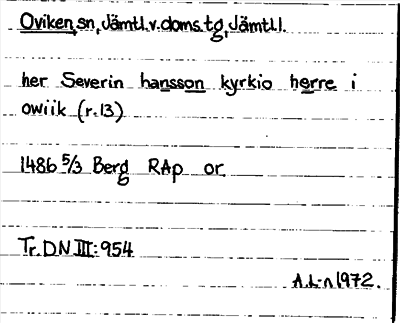 Oviken, sn, Jämtl.v.doms.tg, Jämtl.l.
her Severin hansson kyrkio herre i
owiik (r.13)
1486 5/3 Berg RAp or.
Tr. DN III: 954
A.L-n 1972.